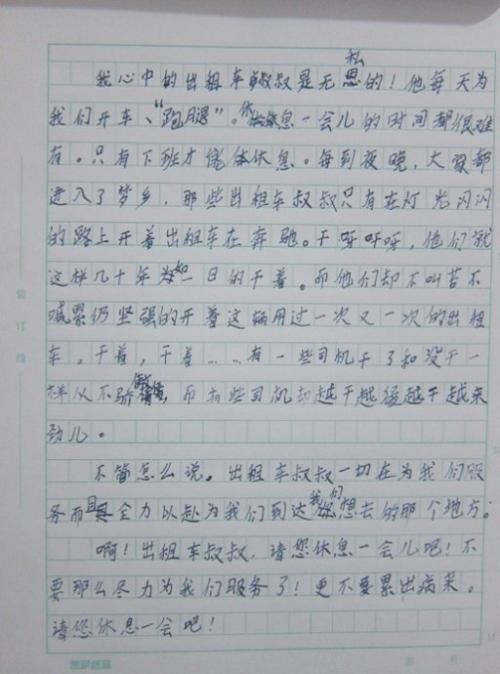 我心中的出租车叔叔是无私的！他每天为
我们开车、“跑腿”。休息一会儿的时间都很难
有。只有下班才像休息。每到夜晚，大家都
进入了梦乡，那些出租车叔叔只有在灯光闪闪
的路上开着出租车在奔驰。干呀呀呀，他们就
这样几十年如一日的干着。而他们却不叫苦不
喊累仍坚强的开着这辆用过一次又一次的出租
车，干着，干着……有一些司机干了和没干一
样从不骄傲，而有些司机却越干越
越干越来
劲儿。
不管怎么说。出租车叔叔一切在为我们服
务而且全力以赴为我们到达我们想去的那个地方。
啊！出租车叔叔，请您休息一会儿吧！不
要那么尽力为我们服务了！更不要累出病来。
请您休息一会吧！
装订线